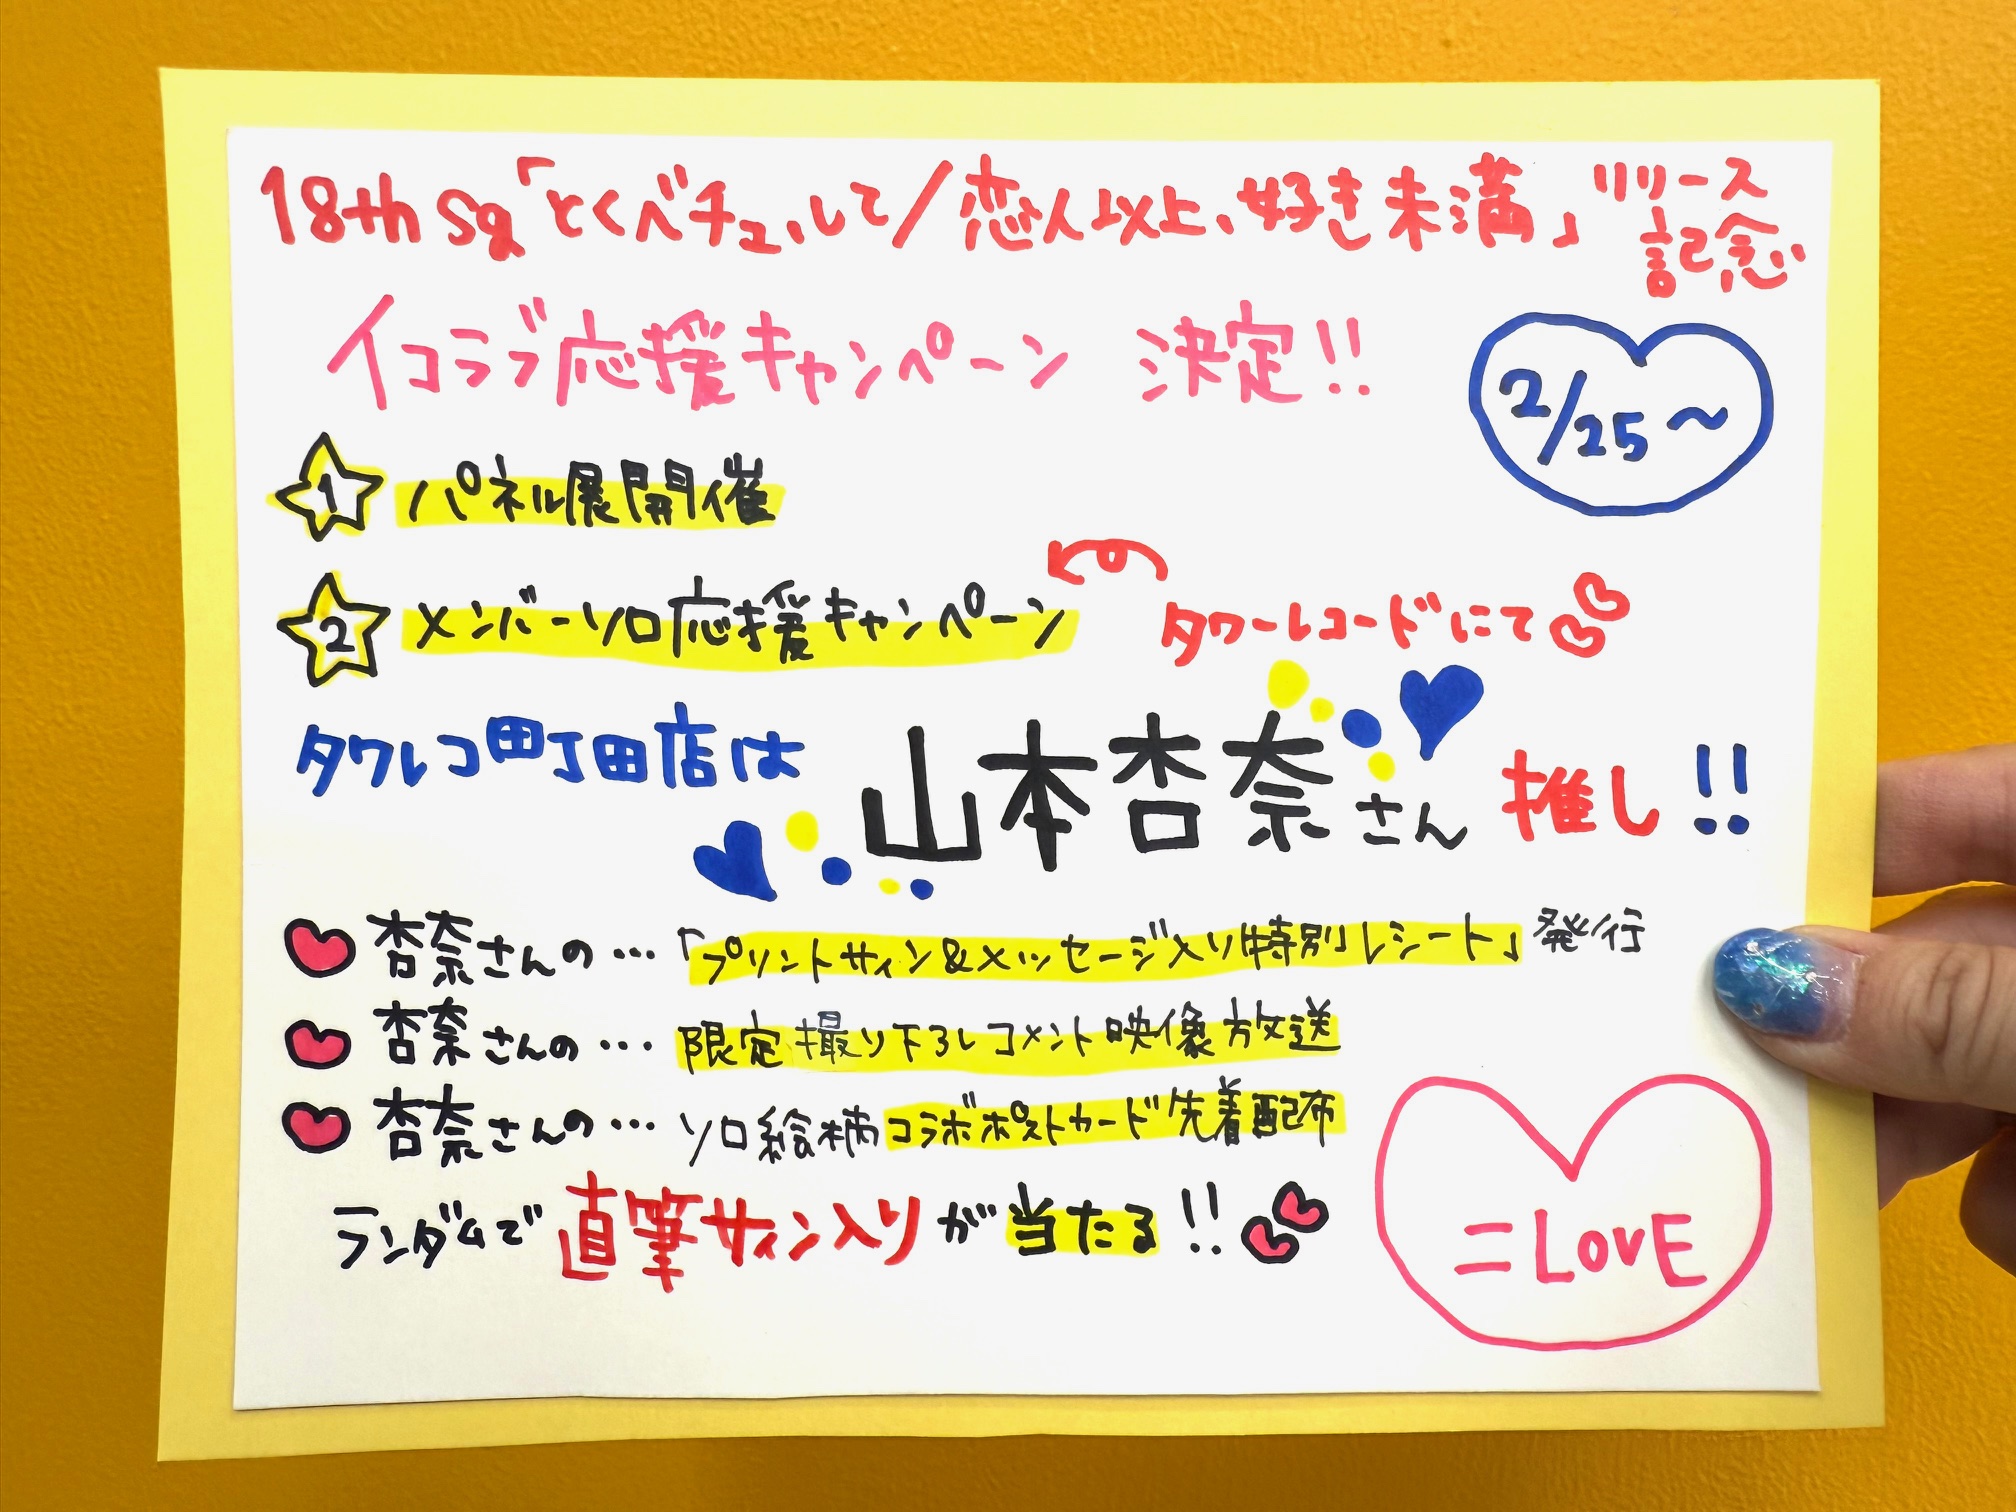 18th Sg「とくべチュ、して/恋人以上、好き未満」リリース記念
イコラブ応援キャンペーン 決定!!
2/25～
1 パネル展開催
2 メンバーソロ応援キャンペーン タワーレコードにて
タワレコ町田店は 山本杏奈さん 推し!!
杏奈さんの…「プリントサイン&メッセージ入り特別レシート」発行
杏奈さんの…限定撮り下ろしコメント映像放送
杏奈さんの…ソロ絵柄コラボポストカード先着配布
ランダムで直筆サイン入りが当たる!!
=LOVE